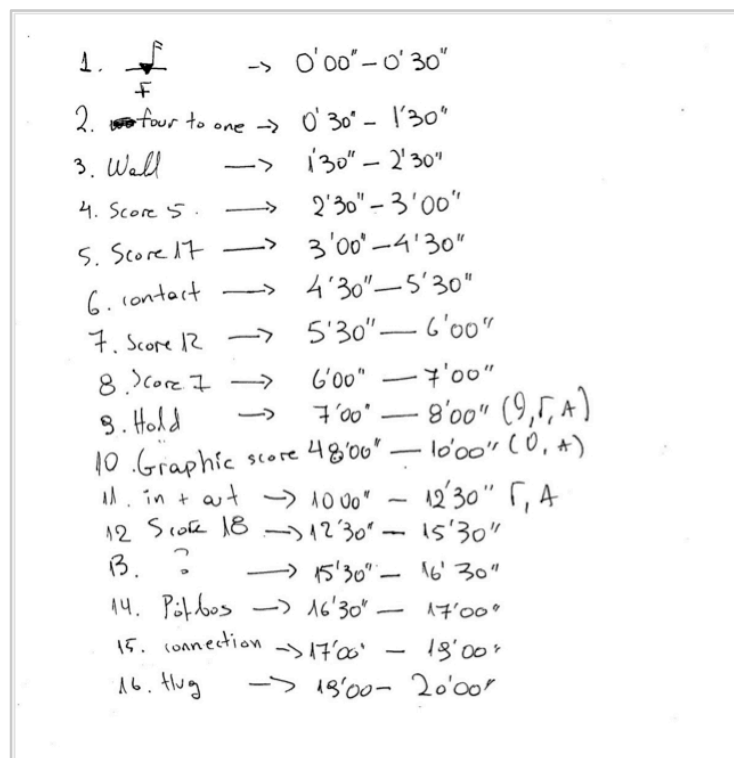 1. -> 0'00" - 0'30"
F
2. four to one -> 0'30" - 1'30"
3. Wall -> 1'30" - 2'30"
4. Score 5. -> 2'30" - 3'00"
5. Score 17 -> 3'00" - 4'30"
6. contact -> 4'30" - 5'30"
7. Score 12 -> 5'30" - 6'00"
8. Score 7 -> 6'00" - 7'00"
9. Hold -> 7'00" - 8'00" (Γ, A)
10. Graphic score 4 8'00" - 10'00" (A)
11. in + out -> 10 00" - 12'30" Γ, A
12 Score 18 -> 12'30" - 15'30"
13. ? -> 15'30" - 16'30"
14. -> 16'30" - 17'00"
15. connection -> 17'00" -
16. Hug -> - 20'00"